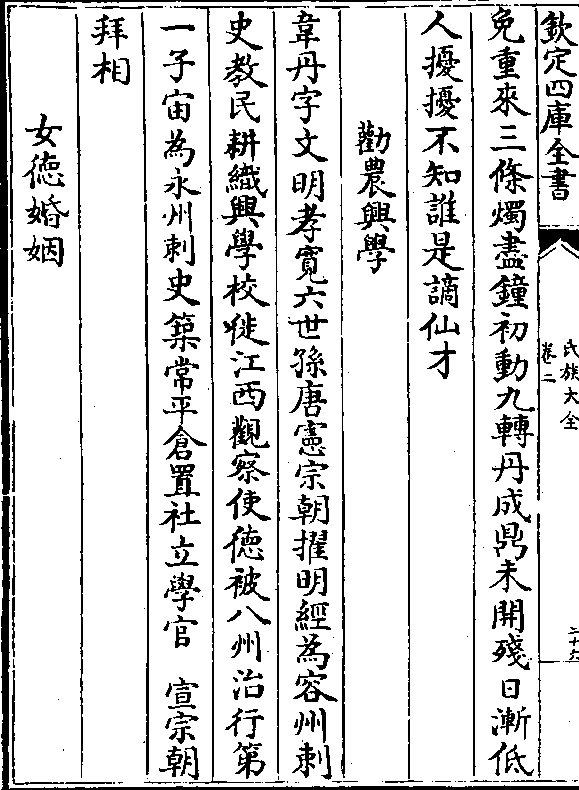 欽定四庫全書
氏族大全
卷二
二十六
免重來三條燭盡鐘初動九轉丹成鼎未開殘日漸低
人擾擾不知誰是謫仙才
勸農興學
韋丹字文明孝寬六世孫唐憲宗朝擢明經為容州刺
史教民耕織興學校徙江西觀察使德被八州治行第
一子宙為永州刺史築常平倉置社立學官 宣宗朝
拜相
女徳婚姻